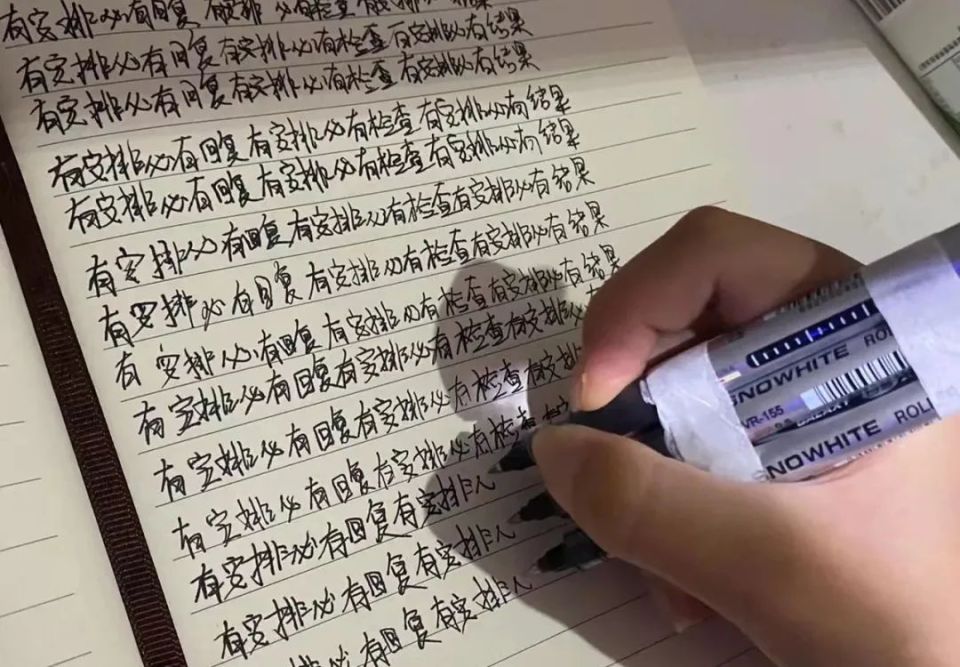 有安排必有回复有安排必有检查有安排必有结果
有安排必有回复有安排必有检查有安排必有结果
有安排必有回复有安排必有检查有安排必有结果
有安排必有回复有安排必有检查有安排必有结果
有安排必有回复有安排必有检查有安排必有结果
有安排必有回复有安排必有检查有安排必有结果
有安排必有回复有安排必有检查有安排必有结果
有安排必有回复有安排必有检查有安排必有结果
有安排必有回复有安排必有检查有安排必
有安排必有回复有安排必有检查有安排
有安排必有回复有安排必有检查
有安排必有回复有安排
有安排必有回复有安排
排必有回复有安排
SNOWHITE
VR-155
SNOWHITE